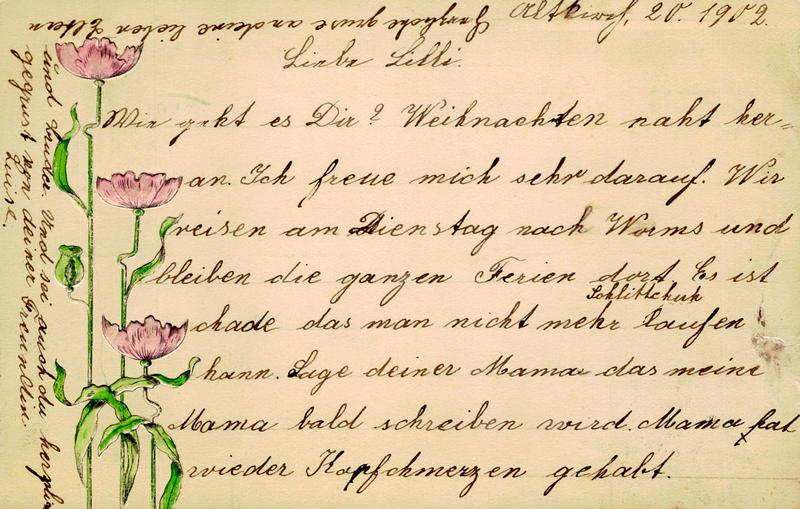 Altkirch, 20. 1902.
Liebe Lilli.
Wie geht es Dir? Weihnachten naht her=
an. Ich freue mich sehr darauf. Wir
reisen am Dienstag nach Worms und
bleiben die ganzen Ferien dort. Es ist
Schlittchuh
chade das man nicht mehr laufen
kann. Sage deiner Mama das meine
Mama bald schreiben wird. Mama hat
wieder Kopfchmerzen gehabt.
Herzliche grüse an deine lieben Eltern
und Bruder. Und sei auch du herzlich
gegrüst von deiner Freundin.
Luise.